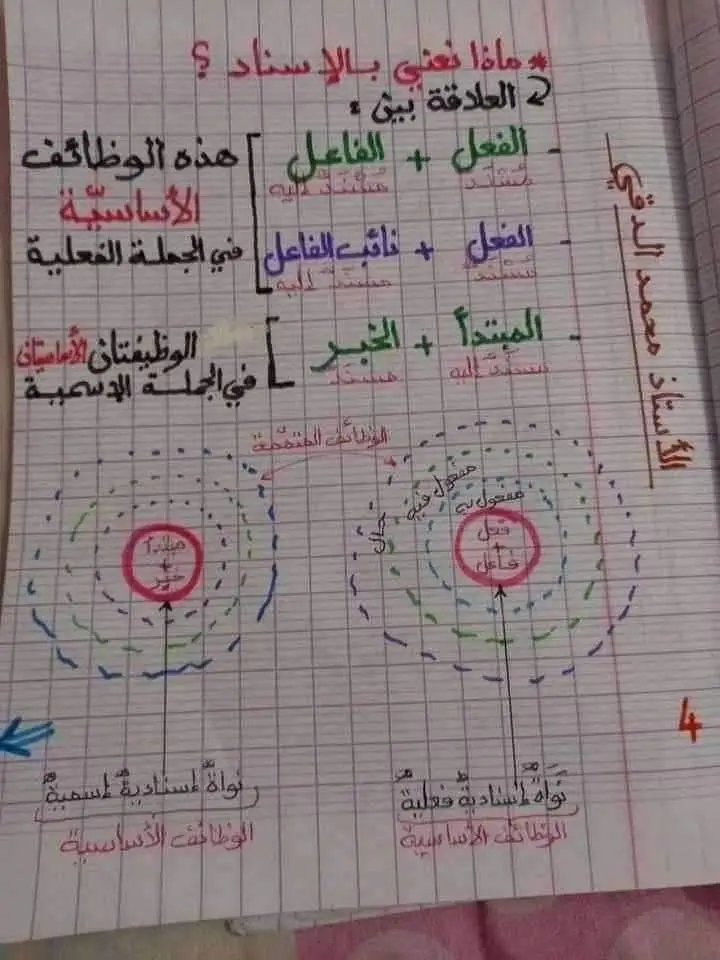 * ماذا نعني بالإسناد ؟
العلاقة بين :
- الفعل + الفاعل
مُسْنَد مُسْنَدٌ إليه
هذه الوظائف
الأساسيّة
في الجملة الفعلية
- الفعل + نائب الفاعل
مُسْنَد مسند إليه
- المبتدأ + الخبر
مسند إليه مسند
الوظيفتان الأساسيتان
في الجملة الاسمية
الأستاذ محمد الدقي
الوظائف المتمّمة
حال
مفعول فيه
مفعول به
فعل
+
فاعل
مبتدأ
+
خبر
4
نواةٌ إسناديةٌ فعليةٌ
الوظائف الأساسية
نواةٌ إسناديةٌ اسميةٌ
الوظائف الأساسية